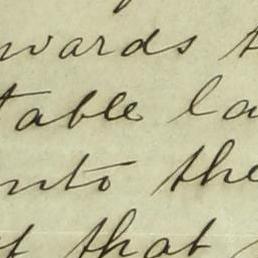 wards t
table la
into the
t that